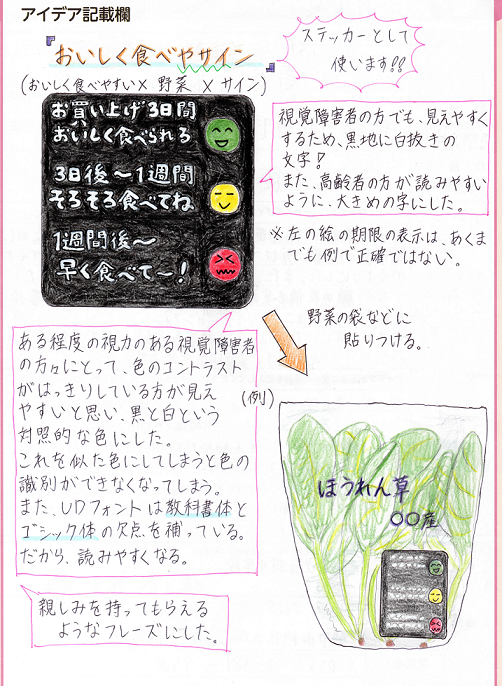 アイデア記載欄
『おいしく食べやサイン』
(おいしく食べやすい×野菜×サイン)
ステッカーとして
使います!!
お買い上げ3日間
おいしく食べられる
3日後〜1週間
そろそろ食べてね
1週間後〜
早く食べて〜!
視覚障害者の方でも、見えやすく
するため、黒地に白抜きの
文字!
また、高齢者の方が読みやすい
ように、大きめの字にした。
※左の絵の期限の表示は、あくま
でも例で正確ではない。
野菜の袋などに
貼りつける。
ある程度の視力のある視覚障害者
の方々にとって、色のコントラスト
がはっきりしている方が見え
やすいと思い、黒と白という
対照的な色にした。
これを似た色にしてしまうと色の
識別ができなくなってしまう。
また、UDフォントは教科書体と
ゴシック体の欠点を補っている。
だから、読みやすくなる。
(例)
ほうれん草
○○産
親しみを持ってもらえる
ようなフレーズにした。